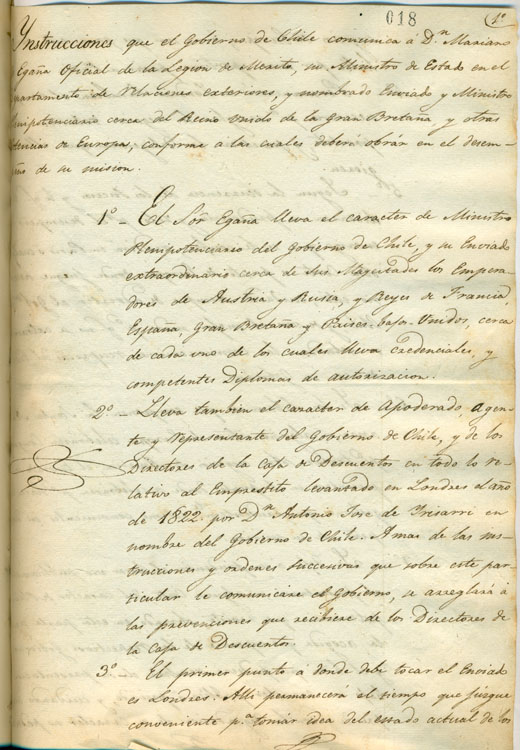 018
1º
Ynstrucciones que el Gobierno de Chile comunica á D.n Mariano
Egaña Oficial de la Legion de Merito, su Ministro de Estado en el
partamento de Relaciones exteriores, y nombrado Enviado y Ministro
nipotenciario cerca del Reino Unido de la Gran Bretaña, y otras
tencias de Europa; conforme a las cuales deberá obrár en el desem-
ño de su mision.
1º - El Sor Egaña lleva el caracter de Ministro
Plenipotenciario del Gobierno de Chile, y su Enviado
extraordinario cerca de Sus Magestades los Empera-
dores de Austria y Rusia, y Reyes de Francia,
España, Gran Bretaña y Paises-bajos-Unidos, cerca
de cada uno de los cuales lleva credenciales, y
competentes Diplomas de autorizacion.
2º - Lleva tambien el caracter de Apoderado, agen-
te y Representante del Gobierno de Chile, y de los
Directores de la Caja de Descuentos en todo lo re-
lativo al Emprestito levantado en Londres el año
de 1822 por D.n Antonio Jose de Irisarri en
nombre del Gobierno de Chile. A mas de las ins-
trucciones y ordenes succesivas que sobre este par-
ticular le comunicáre el Gobierno, se arreglará á
las prevenciones que recibiere de los Directores de
la Caja de Descuentos.
3º El primer punto á donde debe tocar el Enviado
es Londres: Alli permanecerá el tiempo que juzgue
conveniente p.a tomár idea del estado actual de los